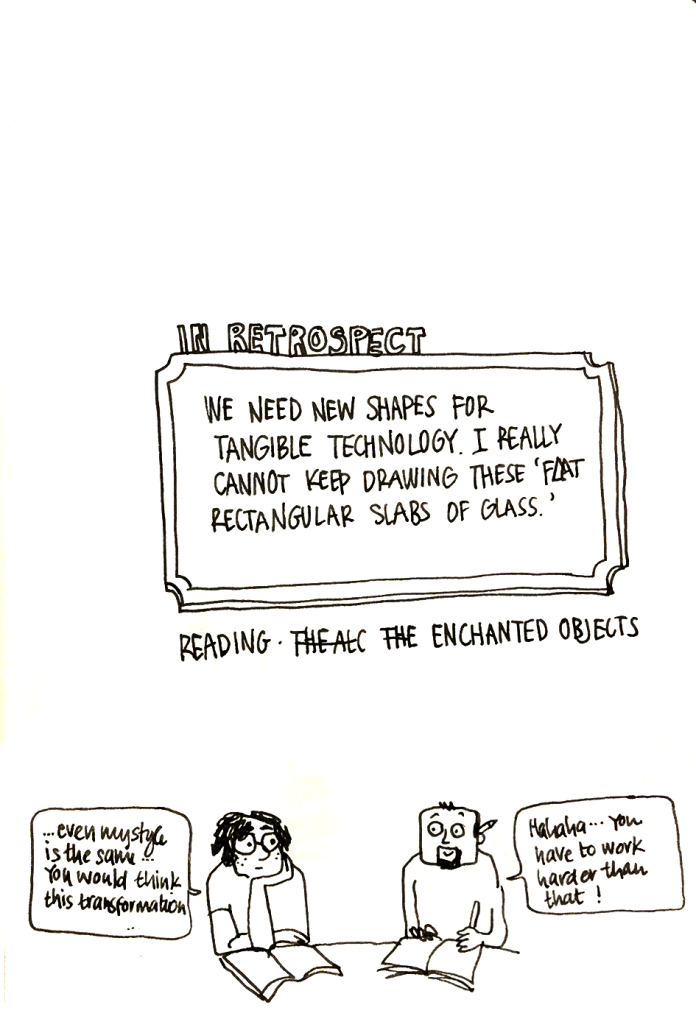 IN RETROSPECT
WE NEED NEW SHAPES FOR
TANGIBLE TECHNOLOGY. I REALLY
CANNOT KEEP DRAWING THESE 'FLAT
RECTANGULAR SLABS OF GLASS.'
READING. THE ALC THE ENCHANTED OBJECTS
...even my style
is the same...
You would think
this transformation
..
Hahaha... You
have to work
harder than
that!